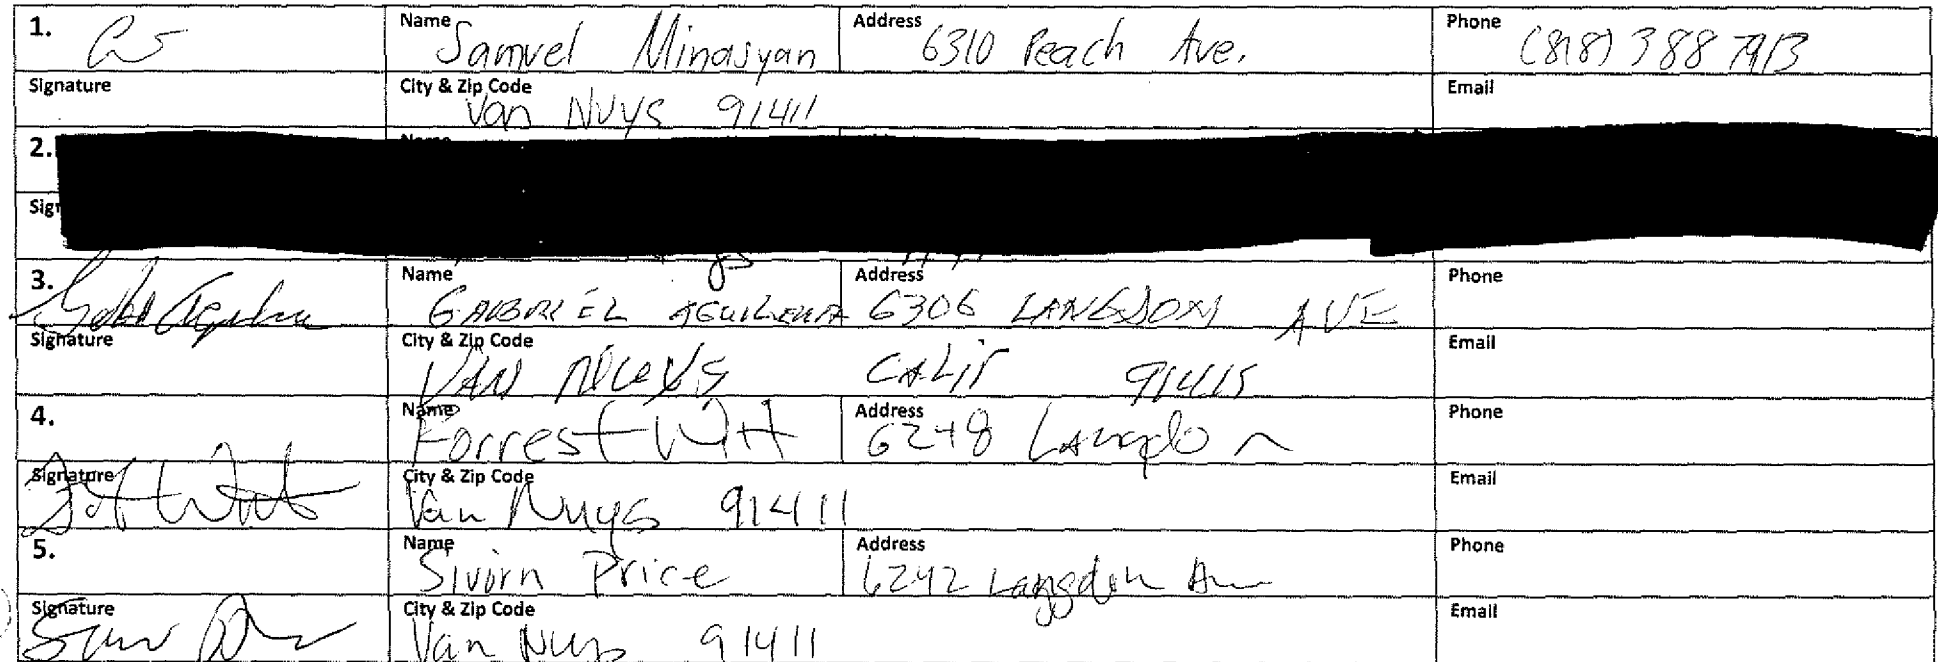 1. Name Samvel Minasyan Address 6310 Peach Ave. Phone (818) 388 7913
Signature City & Zip Code Van Nuys 91411 Email
2.
3. Name GABRIEL AGUILERA Address 6306 LANGDON AVE Phone
Signature City & Zip Code VAN NUYS CALIF 91415 Email
4. Name Forrest Witt Address 6248 Langdon Phone
Signature City & Zip Code Van Nuys 91411 Email
5. Name Sivorn Price Address 6242 Langdon Ave Phone
Signature City & Zip Code Van Nuys 91411 Email